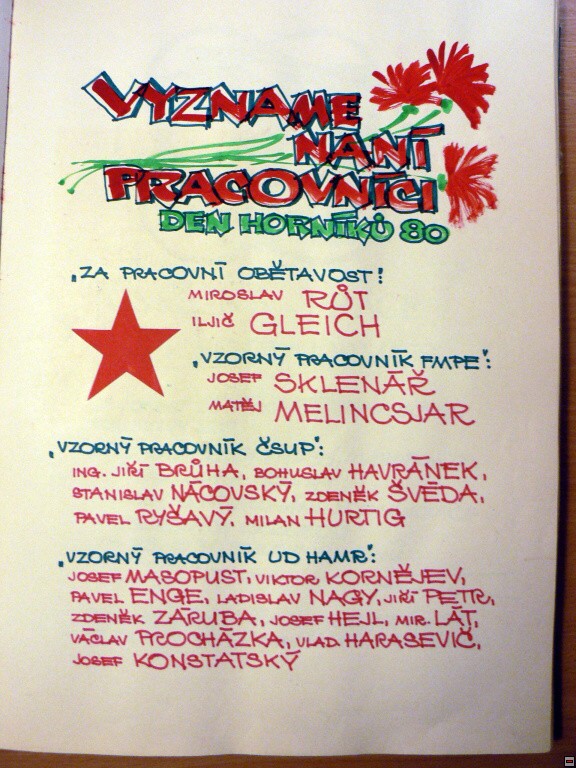 VYZNAME
NANÍ
PRACOVNÍCI
DEN HORNÍKŮ 80
„ZA PRACOVNÍ OBĚTAVOST!
MIROSLAV RŮT
ILJIČ GLEICH
„VZORNÝ PRACOVNÍK FMPE“:
JOSEF SKLENÁŘ
MATĚJ MELINCSJAR
„VZORNÝ PRACOVNÍK ČSUP“:
ING. JIŘÍ BRŮHA, BOHUSLAV HAVRÁNEK,
STANISLAV NÁCOVSKÝ, ZDENĚK ŠVÉDA,
PAVEL RYŠAVÝ, MILAN HURTIG
„VZORNÝ PRACOVNÍK UD HAMR“:
JOSEF MASOPUST, VIKTOR KORNĚJEV,
PAVEL ENGE, LADISLAV NAGY, JIŘÍ PETR,
ZDENĚK ZÁRUBA, JOSEF HEJL, MIR. LÁT,
VÁCLAV PROCHÁZKA, VLAD. HARASEVIČ,
JOSEF KONSTATSKÝ